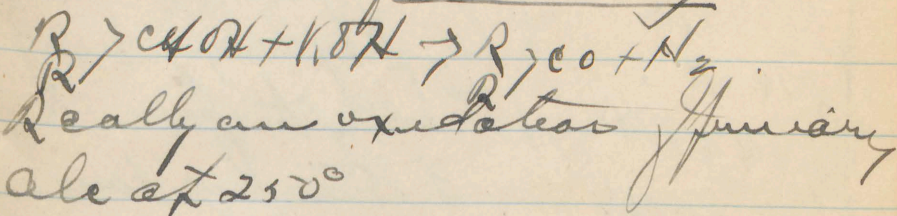 R
R > CHOH + KOH → R
R > CO + H2
Really an oxidation of primary
Alc at 250°